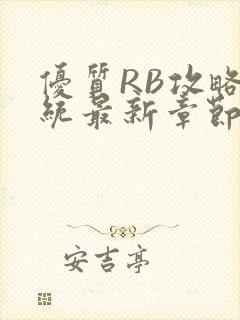 優質RB攻略
統最新章節
安吉亭